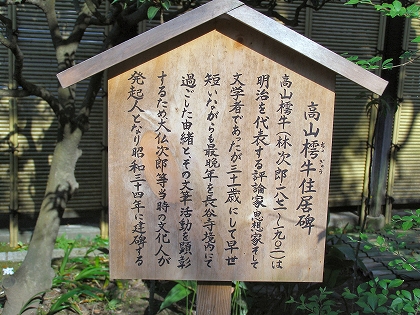 高山樗牛住居碑
ちょ ぎゅう
高山樗牛(林次郎一八七一~一九〇二)は
明治を代表する評論家、思想家そして
文学者であったが三十一歳にして早世
短いながらも最晩年を長谷寺境内にて
過ごした由緒と、その文筆活動を顕彰
するため大仏次郎等当時の文化人が
発起人となり昭和三十四年に建碑する